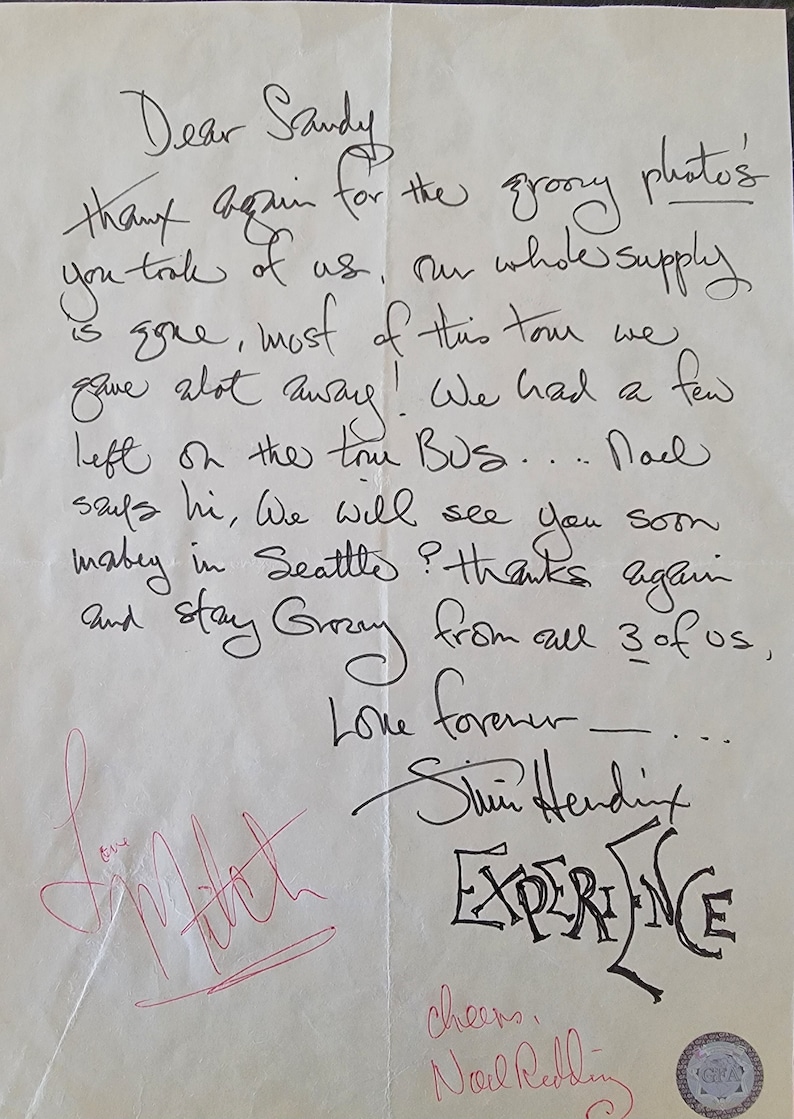 Dear Sandy
thanx again for the groovy photo's
you took of us, our whole supply
is gone, most of this tour we
gave alot away! We had a few
left on the tour BUS.... Noel
says hi, We will see you soon
mabey in Seattle? thanks again
and stay Groovy from all 3 of us,
Love forever — ...
Jimi Hendrix
EXPERIENCE
Love
Mitch
cheers,
Noel Redding
GFA